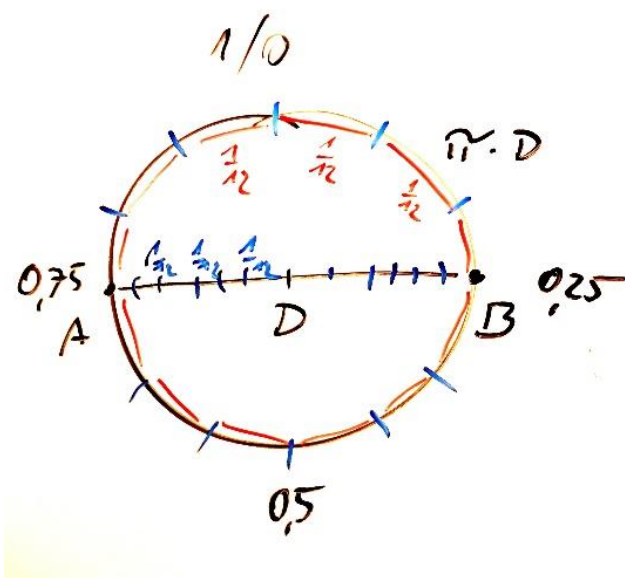 1/0
π·D
1/12
1/12
1/12
0,75
1/12
1/12
1/12
0,25
A
D
B
0,5